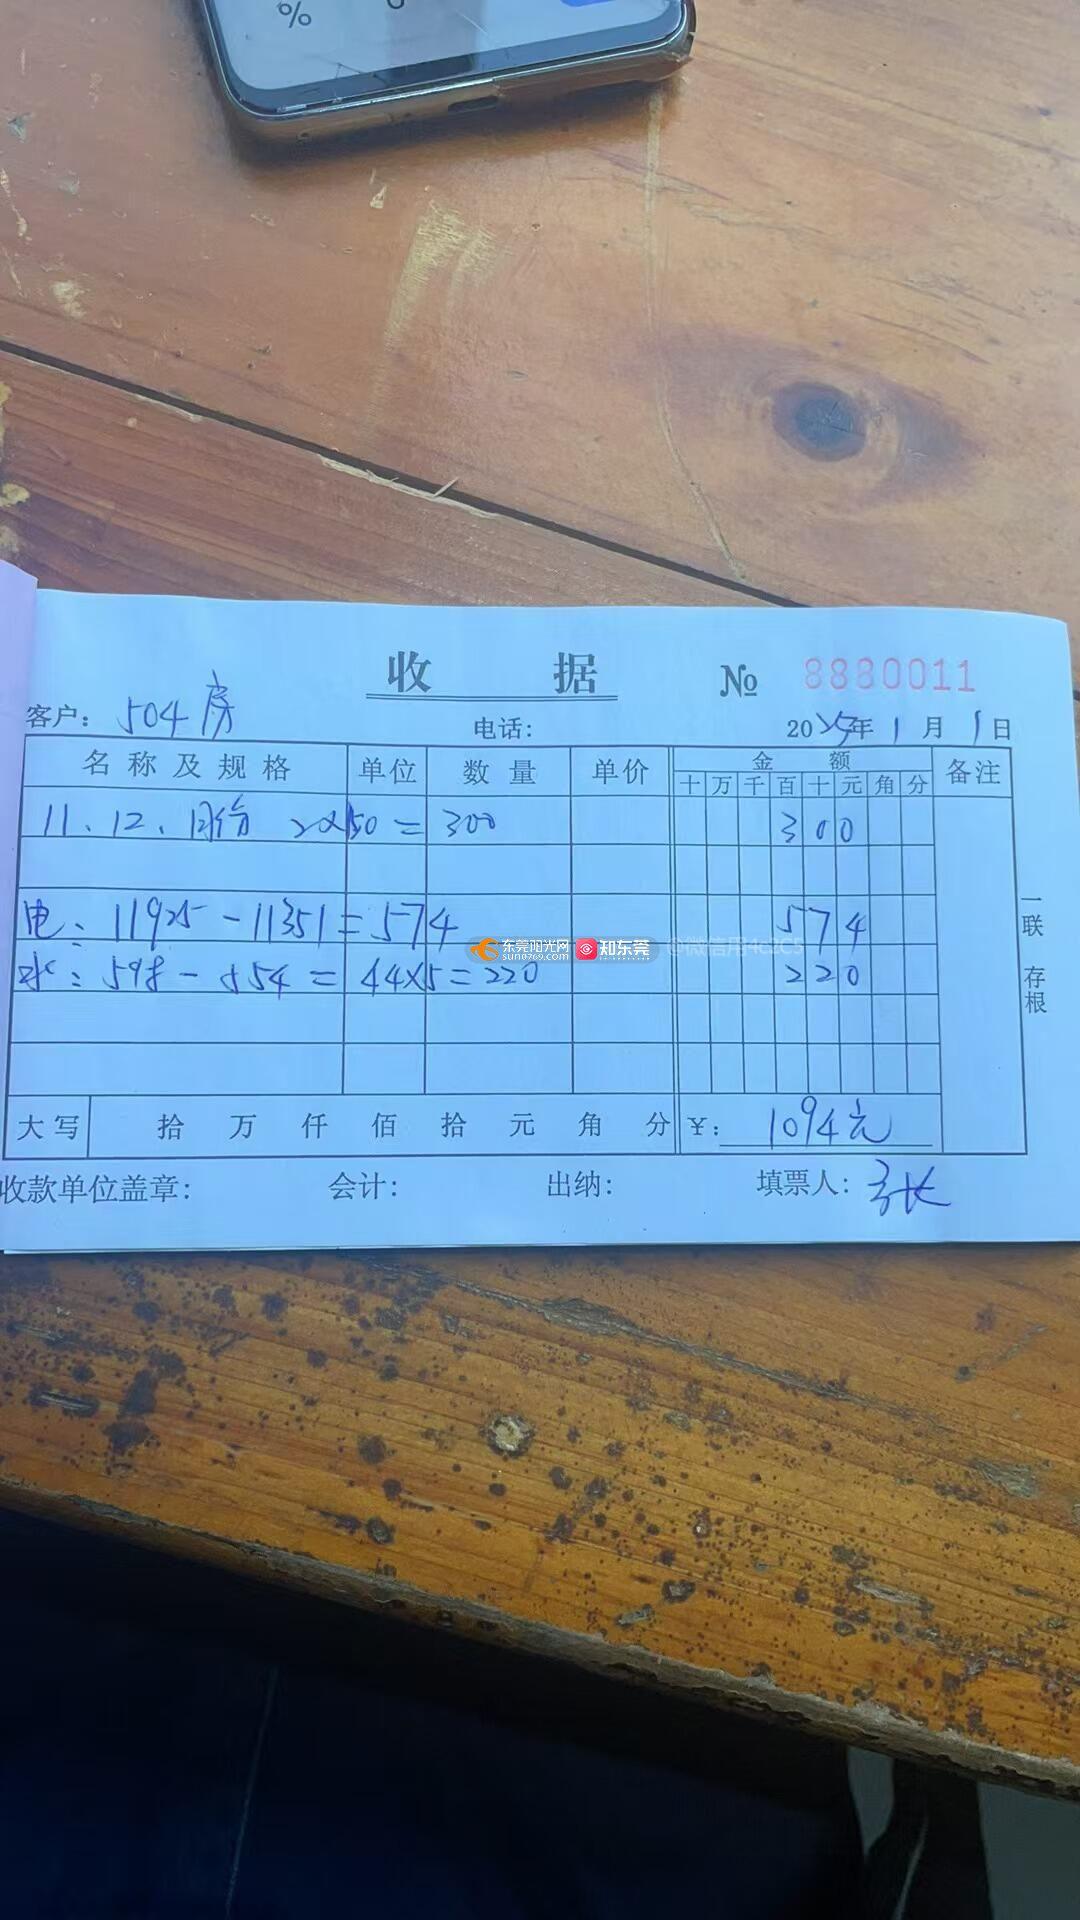 %
收 据 № 8880011
客户: 504房 电话: 2025年 1月 1日
名称及规格 单位 数量 单价 金额 备注
十 万 千 百 十 元 角 分
11、12、月份 2x150= 300 300
电: 11925-11351=574 574
水: 598-554=44x5=220 220
东莞阳光网 sun0769.com 知东莞 @微信用4c2C5
一联 存根
大写 拾 万 仟 佰 拾 元 角 分 ¥: 1094元
收款单位盖章: 会计: 出纳: 填票人: